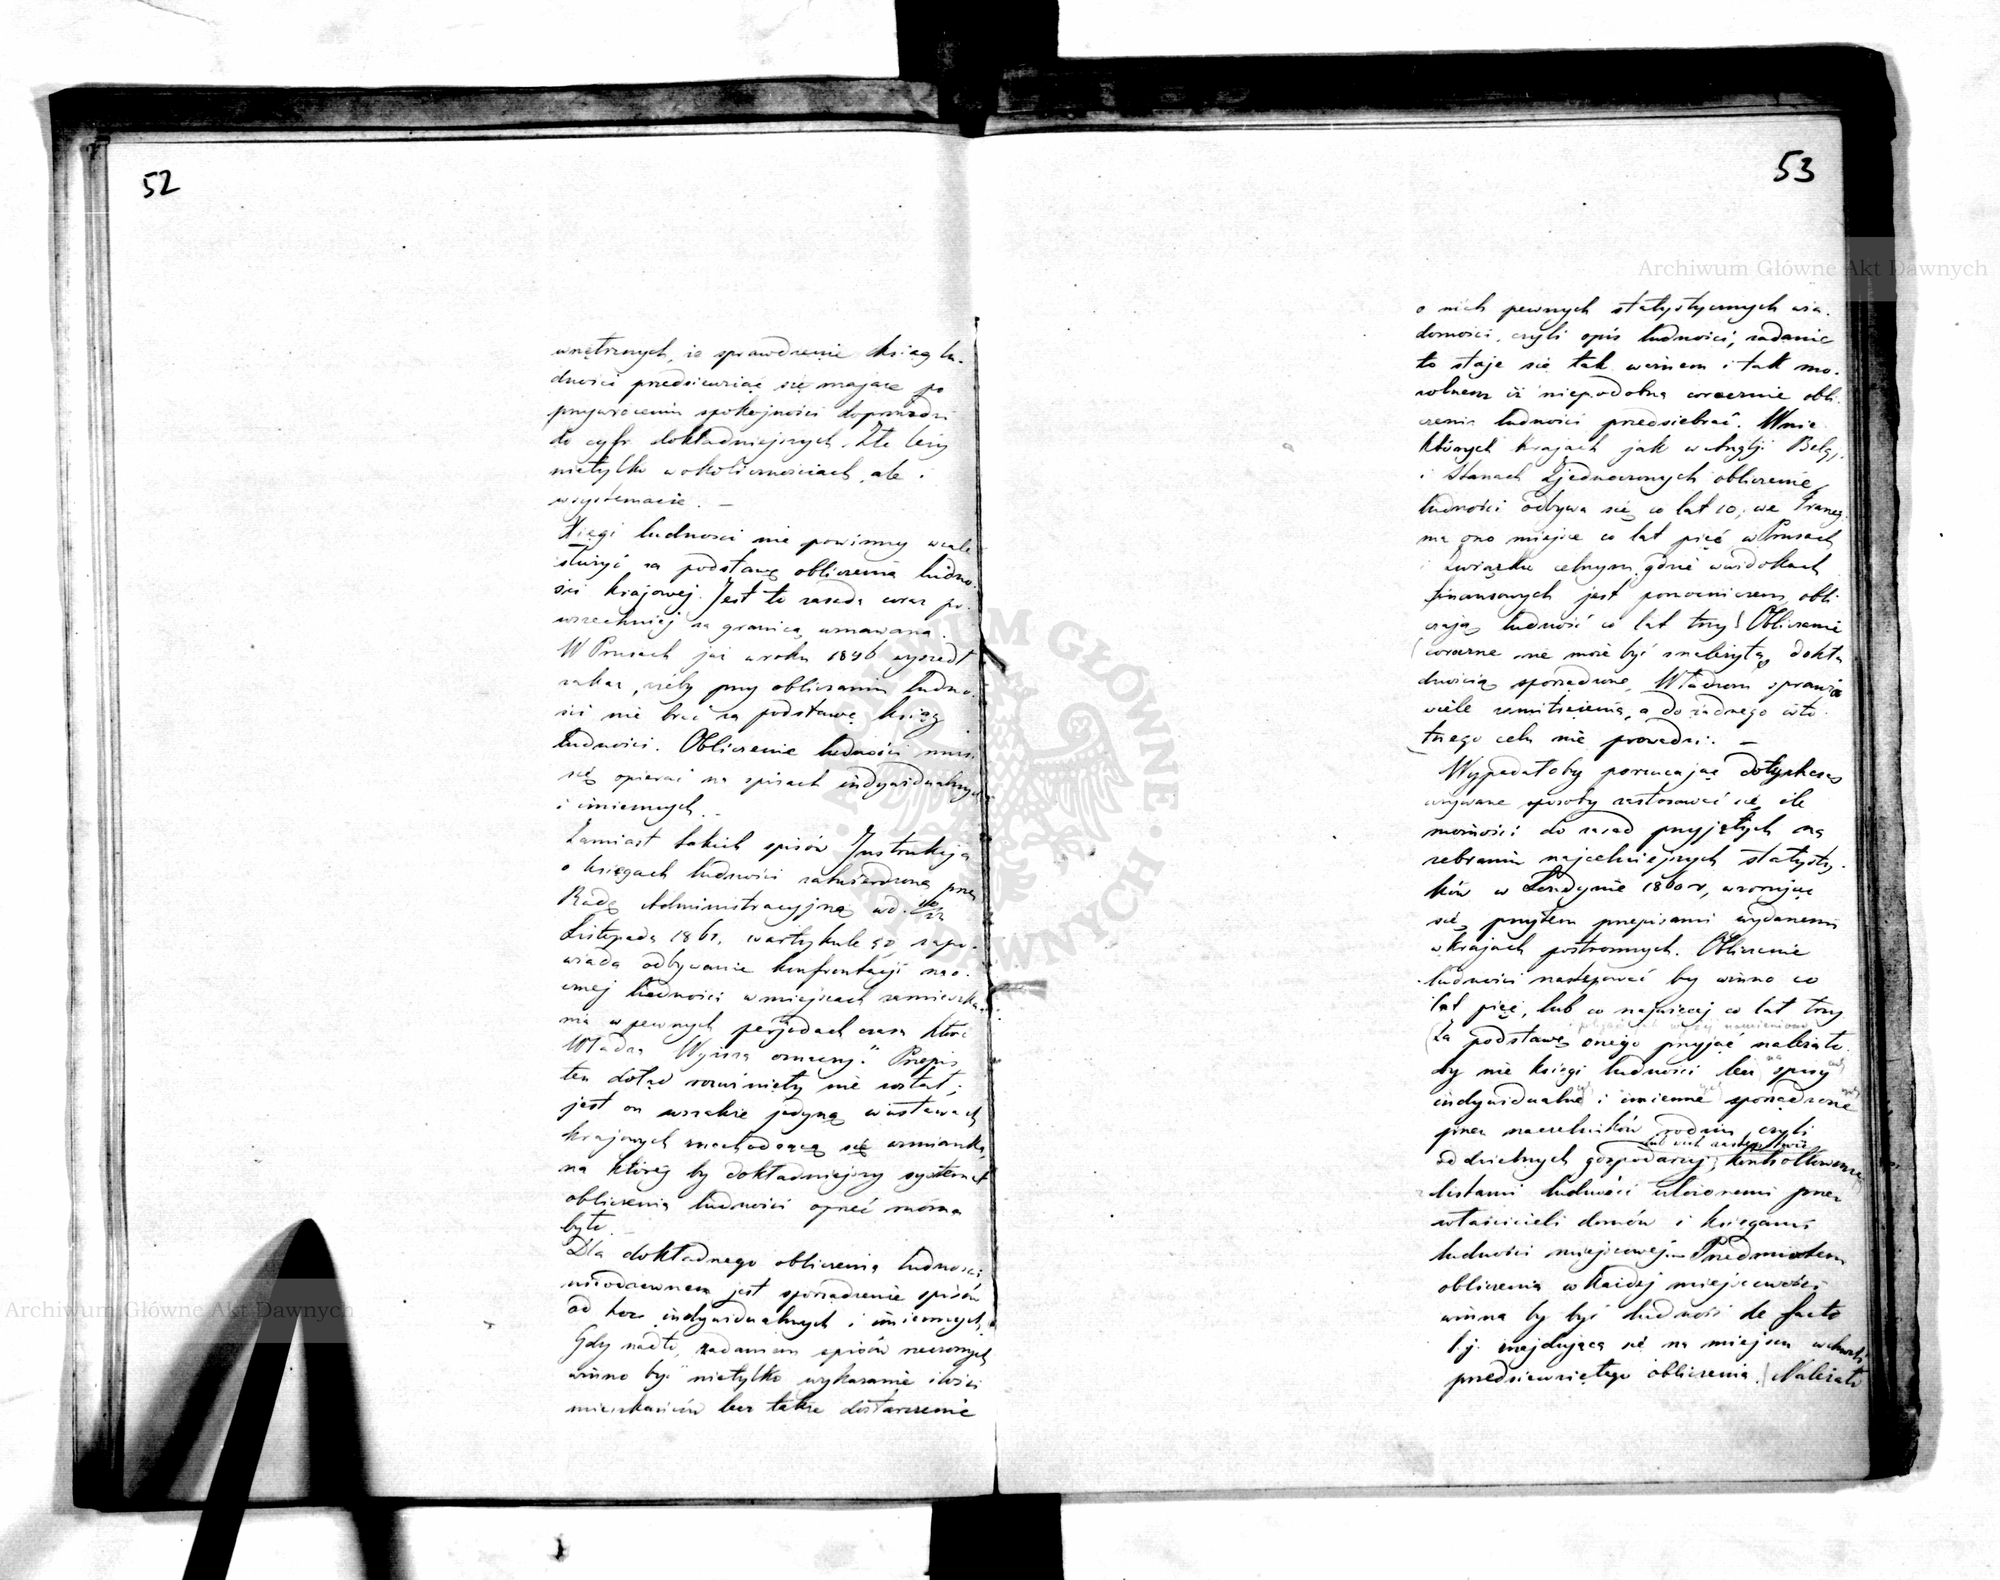 52
wnętrznych, że sprawdzenie ksiąg lu-
dności przedsiewziąć się mające po
przywróceniu spokojności doprowadzi
do cyfr dokładniejszych. Złe leży
nietylko w okolicznościach, ale i
w systemacie. —
Księgi ludności nie powinny wcale
służyć za podstawę obliczenia ludno-
ści krajowej. Jest to zasada coraz po-
wszechniej za granicą uznawana.
W Prusach już w roku 1846 wyszedł
zakaz, żeby przy obliczaniu ludno-
ści nie brać za podstawę ksiąg
ludności. Obliczenie ludności musi
się opierać na spisach indywidualnych
i imiennych.
Zamiast takich spisów Instrukcja
o księgach ludności zatwierdzona przez
Radę Administracyjną w d.
Listopada 1861, w artykule 50 zapo-
wiada odbywanie konfrontacji nao-
cznej ludności w miejscach zamieszka-
nia w pewnych perjodach czasu które
Władza Wyższa oznaczy." Przepis
ten dotąd rozwinięty nie został;
jest on wszakże jedyną w ustawach
krajowych znachodzącą się wzmianką,
na której by dokładniejszy systemat
obliczenia ludności oprzeć można
było.
Dla dokładnego obliczenia ludności
jest sporządzenie spisów
ad hoc indywidualnych i imiennych.
Gdy nadto, zadaniem spisów rzeczonych
winno być nietylko wykazanie ilości
mieszkańców lecz także dostarczenie
53
o nich pewnych statystycznych wia-
domości, czyli opis ludności, zadanie
to staje się tak ważnem i tak mo-
zolnem iż niepodobna corocznie obli-
czenia ludności przedsiebrać. W nie-
których krajach jak w Anglji Belgji
i Stanach Zjednoczonych obliczenie
ludności odbywa się co lat 10; we Francji
ma ono miejsce co lat pięć w Prusach
i Związku celnym, gdzie w widokach
finansowych jest pomocniczem, obli-
czają ludność co lat trzy. Obliczenie
coroczne nie może być z należytą dokła-
dnością sporządzone, Władzom sprawia
wiele zamitrężenia, a do żadnego isto-
tnego celu nie prowadzi. —
Wypadałoby porzucając dotychczas
używane sposoby zastosować się ile
możności do zasad przyjętych na
zebraniu najcelniejszych statysty-
ków w Londynie 1860 r, wzorując
się przytem przepisami wydanemi
w krajach postronnych. Obliczenie
ludności następować by winno co
lat pięć, lub co najwięcej co lat trzy.
Za podstawę onego przyjąć należało-
by nie księgi ludności lecz spisy
indywidualne i imienne sporządzone
przez naczelników rodzin czyli
lub ich zastępców
oddzielnych gospodarzy, kontrollowane
listami ludności ułożonemi przez
właścicieli domów i księgami
ludności miejscowej. — Przedmiotem
obliczenia w każdej miejscowości
winna by być ludność de facto
t.j. znajdująca się na miejscu w chwili
przedsiewziętego obliczenia. Należało
Archiwum Główne Akt Dawnych
Archiwum Główne Akt Dawnych
ARCHIWUM GŁÓWNE AKT DAWNYCH